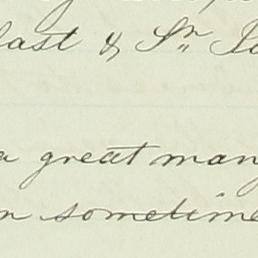 last & Sn.
a great many
n sometime